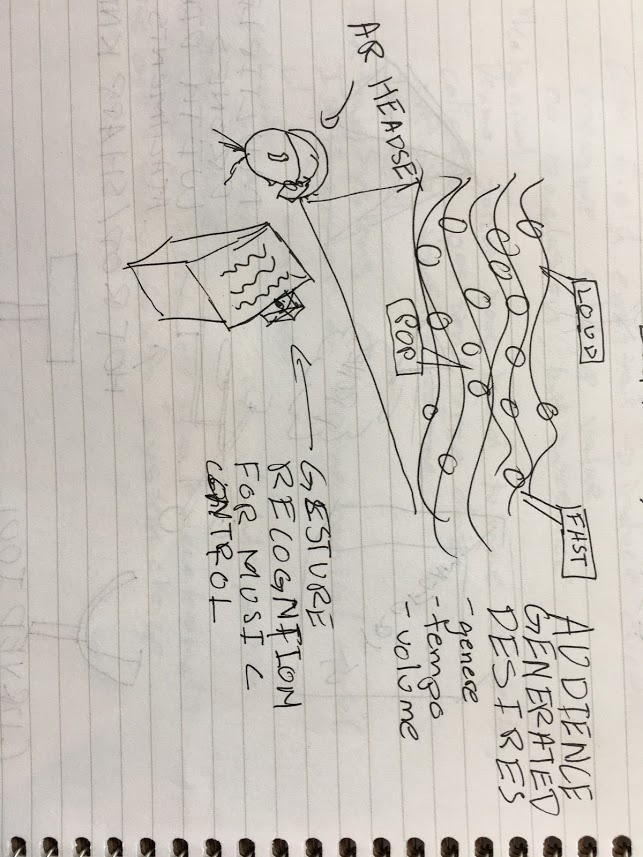 AR HEADSET
LOUD
POP
FAST
AUDIENCE
GENERATED
DESIRES
- genere
- tempo
- volume
GESTURE
RECOGNITION
FOR MUSIC
CONTROL